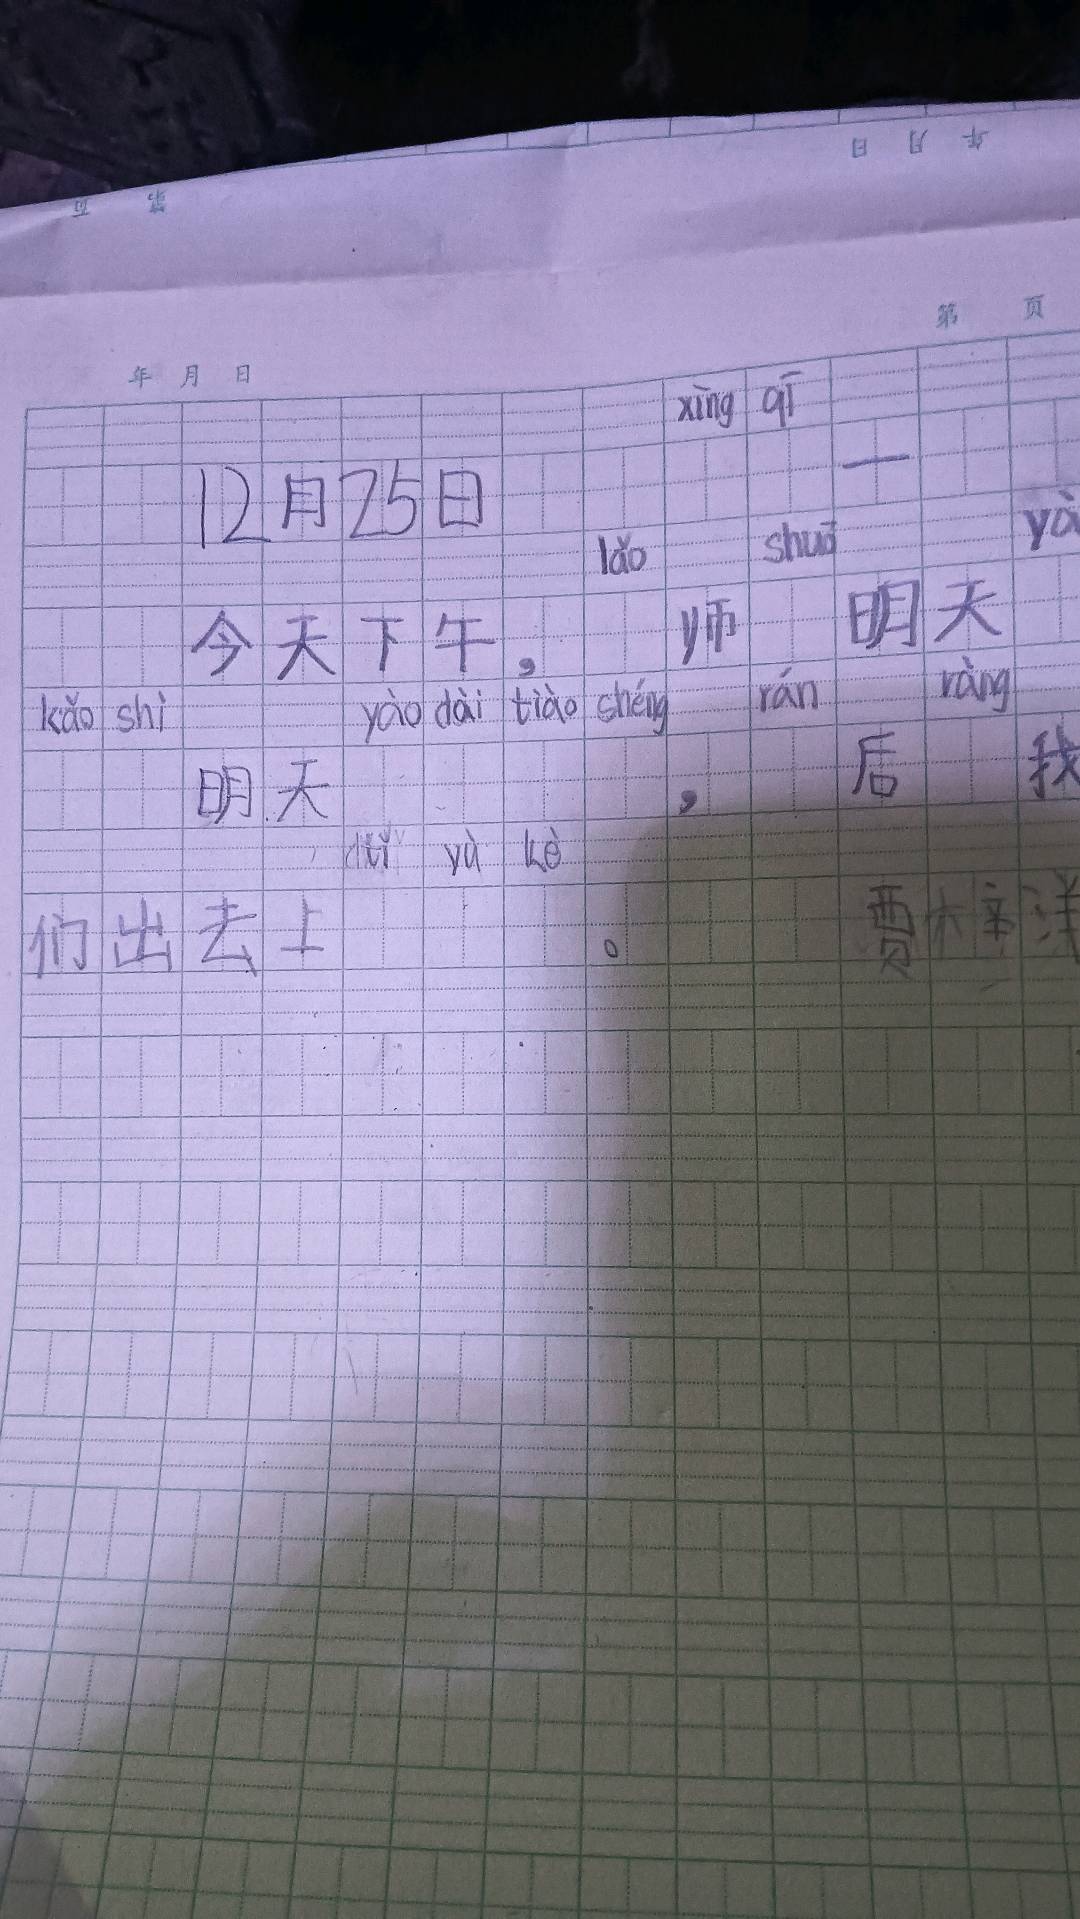 年 月 日
第 页
年 月 日
第 页
xīng qī
12月25日 一
lǎo shuō yà
今天下午， 师 明天
kǎo shì yào dài tiào shéng rán ràng
明天 ， 后 我
yù kè
们出去上 。 贾梓洋